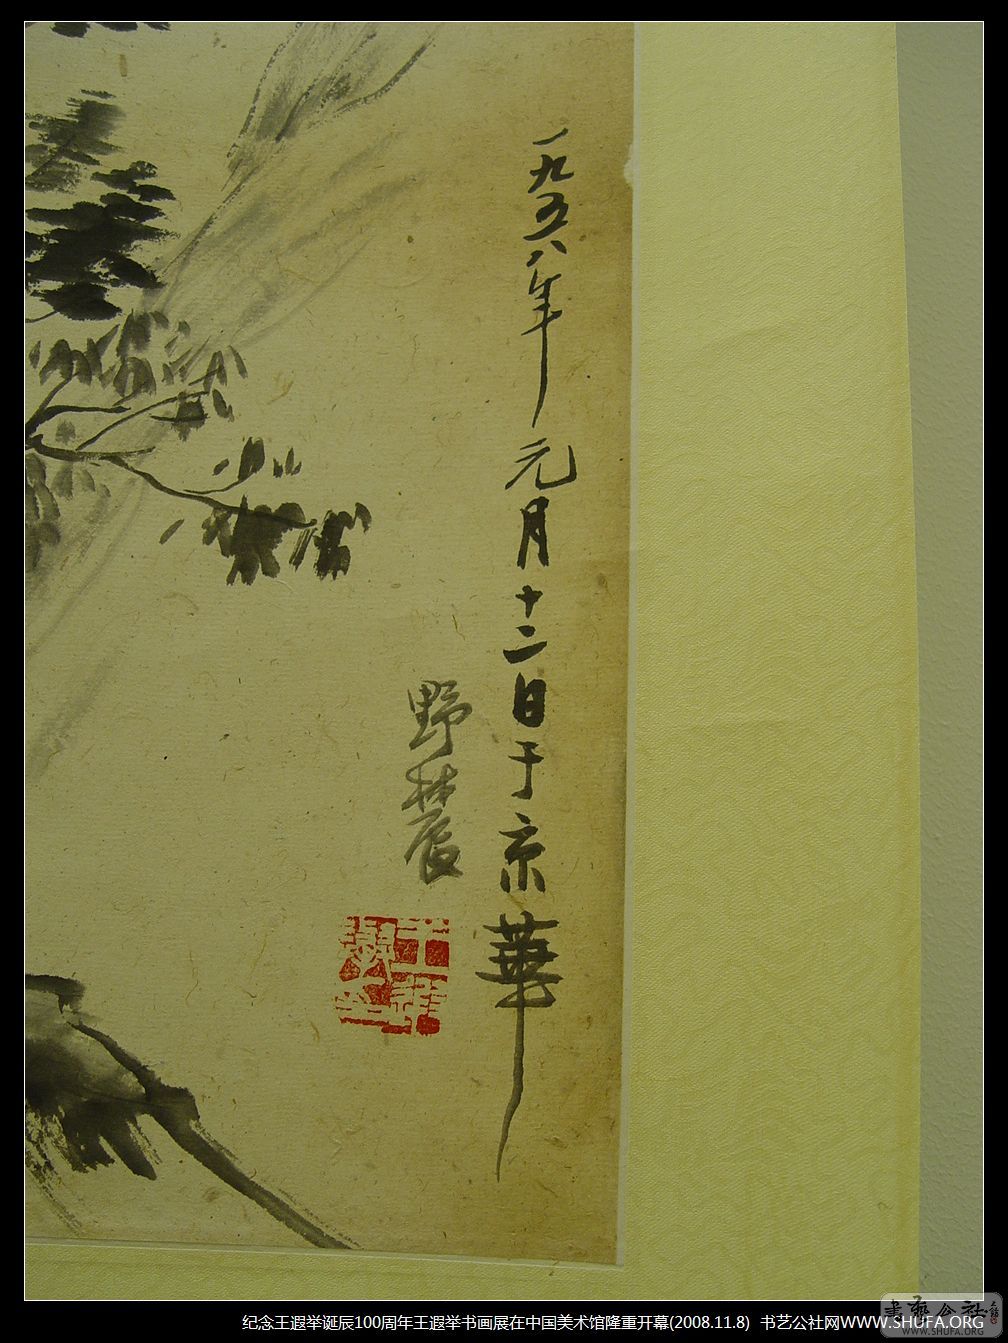 一九五八年元月十二日于京華
野
纪念王遐举诞辰100周年王遐举书画展在中国美术馆隆重开幕(2008.11.8) 书艺公社网WWW.SHUFA.ORG
書藝公社
WWW.SHUFA.ORG